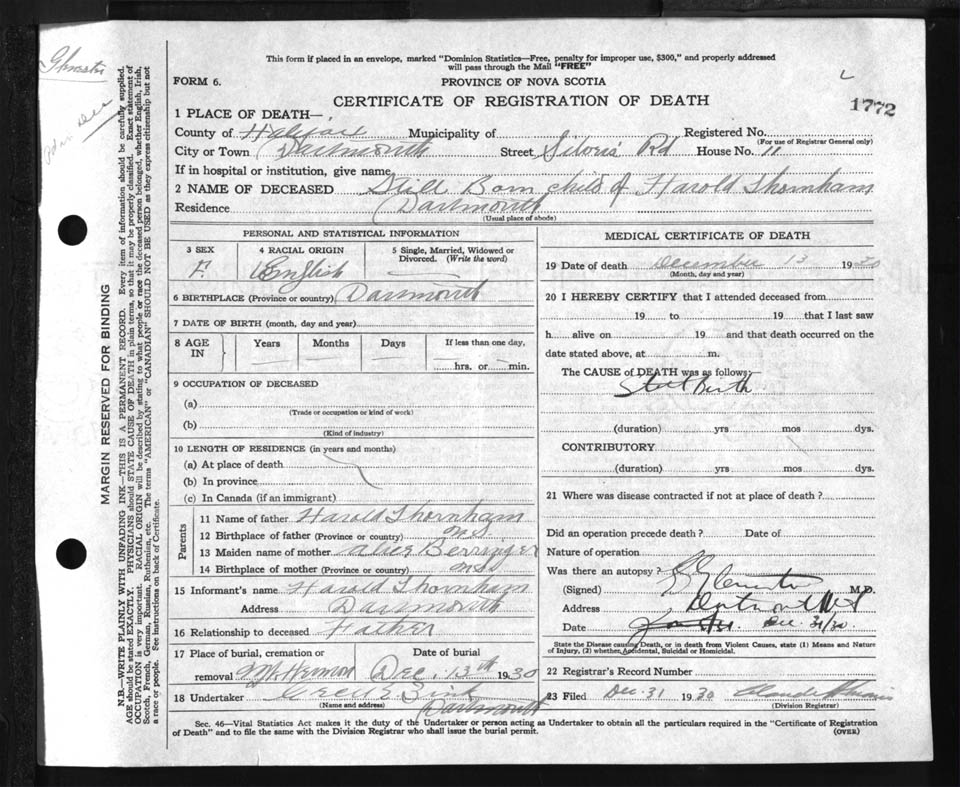 This form if placed in an envelope, marked "Dominion Statistics—Free, penalty for improper use, $300," and properly addressed
will pass through the Mail "FREE"
FORM 6.
PROVINCE OF NOVA SCOTIA
CERTIFICATE OF REGISTRATION OF DEATH
1772
1 PLACE OF DEATH—
County of Halifax Municipality of Registered No.
(For use of Registrar General only)
City or Town Dartmouth Street Rd House No. 11
If in hospital or institution, give name
2 NAME OF DECEASED Still Born child of Harold Thornham
Residence Dartmouth
(Usual place of abode)
PERSONAL AND STATISTICAL INFORMATION
3 SEX 4 RACIAL ORIGIN 5 Single, Married, Widowed or Divorced. (Write the word)
F. English
6 BIRTHPLACE (Province or country) Dartmouth
7 DATE OF BIRTH (month, day and year)
8 AGE IN Years Months Days If less than one day, hrs. or min.
9 OCCUPATION OF DECEASED
(a)
(Trade or occupation or kind of work)
(b)
(Kind of industry)
10 LENGTH OF RESIDENCE (in years and months)
(a) At place of death
(b) In province
(c) In Canada (if an immigrant)
Parents
11 Name of father Harold Thornham
12 Birthplace of father (Province or country) N.S.
13 Maiden name of mother Alice Berringer
14 Birthplace of mother (Province or country) N.S.
15 Informant's name Harold Thornham
Address Dartmouth
16 Relationship to deceased Father
17 Place of burial, cremation or removal Date of burial
Mt Hermon Dec. 13th 1930
18 Undertaker
(Name and address)
Dartmouth
MEDICAL CERTIFICATE OF DEATH
19 Date of death December 13 1930
(Month, day and year)
20 I HEREBY CERTIFY that I attended deceased from
19 to 19 that I last saw
h alive on 19 and that death occurred on
date stated above, at m.
The CAUSE of DEATH was as follows:
Still Birth
(duration) yrs mos dys.
CONTRIBUTORY
(duration) yrs mos dys.
21 Where was disease contracted if not at place of death?
Did an operation precede death? Date of
Nature of operation
Was there an autopsy?
(Signed) M.D.
Address Dartmouth
Date Dec. 31/30.
State the Disease causing Death, or in death from Violent Causes, state (1) Means and Nature
of Injury, (2) whether Accidental, Suicidal or Homicidal.
22 Registrar's Record Number
23 Filed Dec. 31 1930
(Division Registrar)
Sec. 46—Vital Statistics Act makes it the duty of the Undertaker or person acting as Undertaker to obtain all the particulars required in the "Certificate of Registration
of Death" and to file the same with the Division Registrar who shall issue the burial permit.
(OVER)
MARGIN RESERVED FOR BINDING
N.B.—WRITE PLAINLY WITH UNFADING INK—THIS IS A PERMANENT RECORD. Every item of information should be carefully supplied.
AGE should be stated EXACTLY. PHYSICIANS should STATE CAUSE OF DEATH in plain terms, so that it may be properly classified. Exact statement of
OCCUPATION is very important. RACIAL ORIGIN will be described by stating to what people or race the deceased person belonged, whether English, Irish,
Scotch, French, German, Russian, Ruthenian, etc. The terms "AMERICAN" or "CANADIAN" SHOULD NOT BE USED as they express citizenship but not
a race or people. See instructions on back of Certificate.